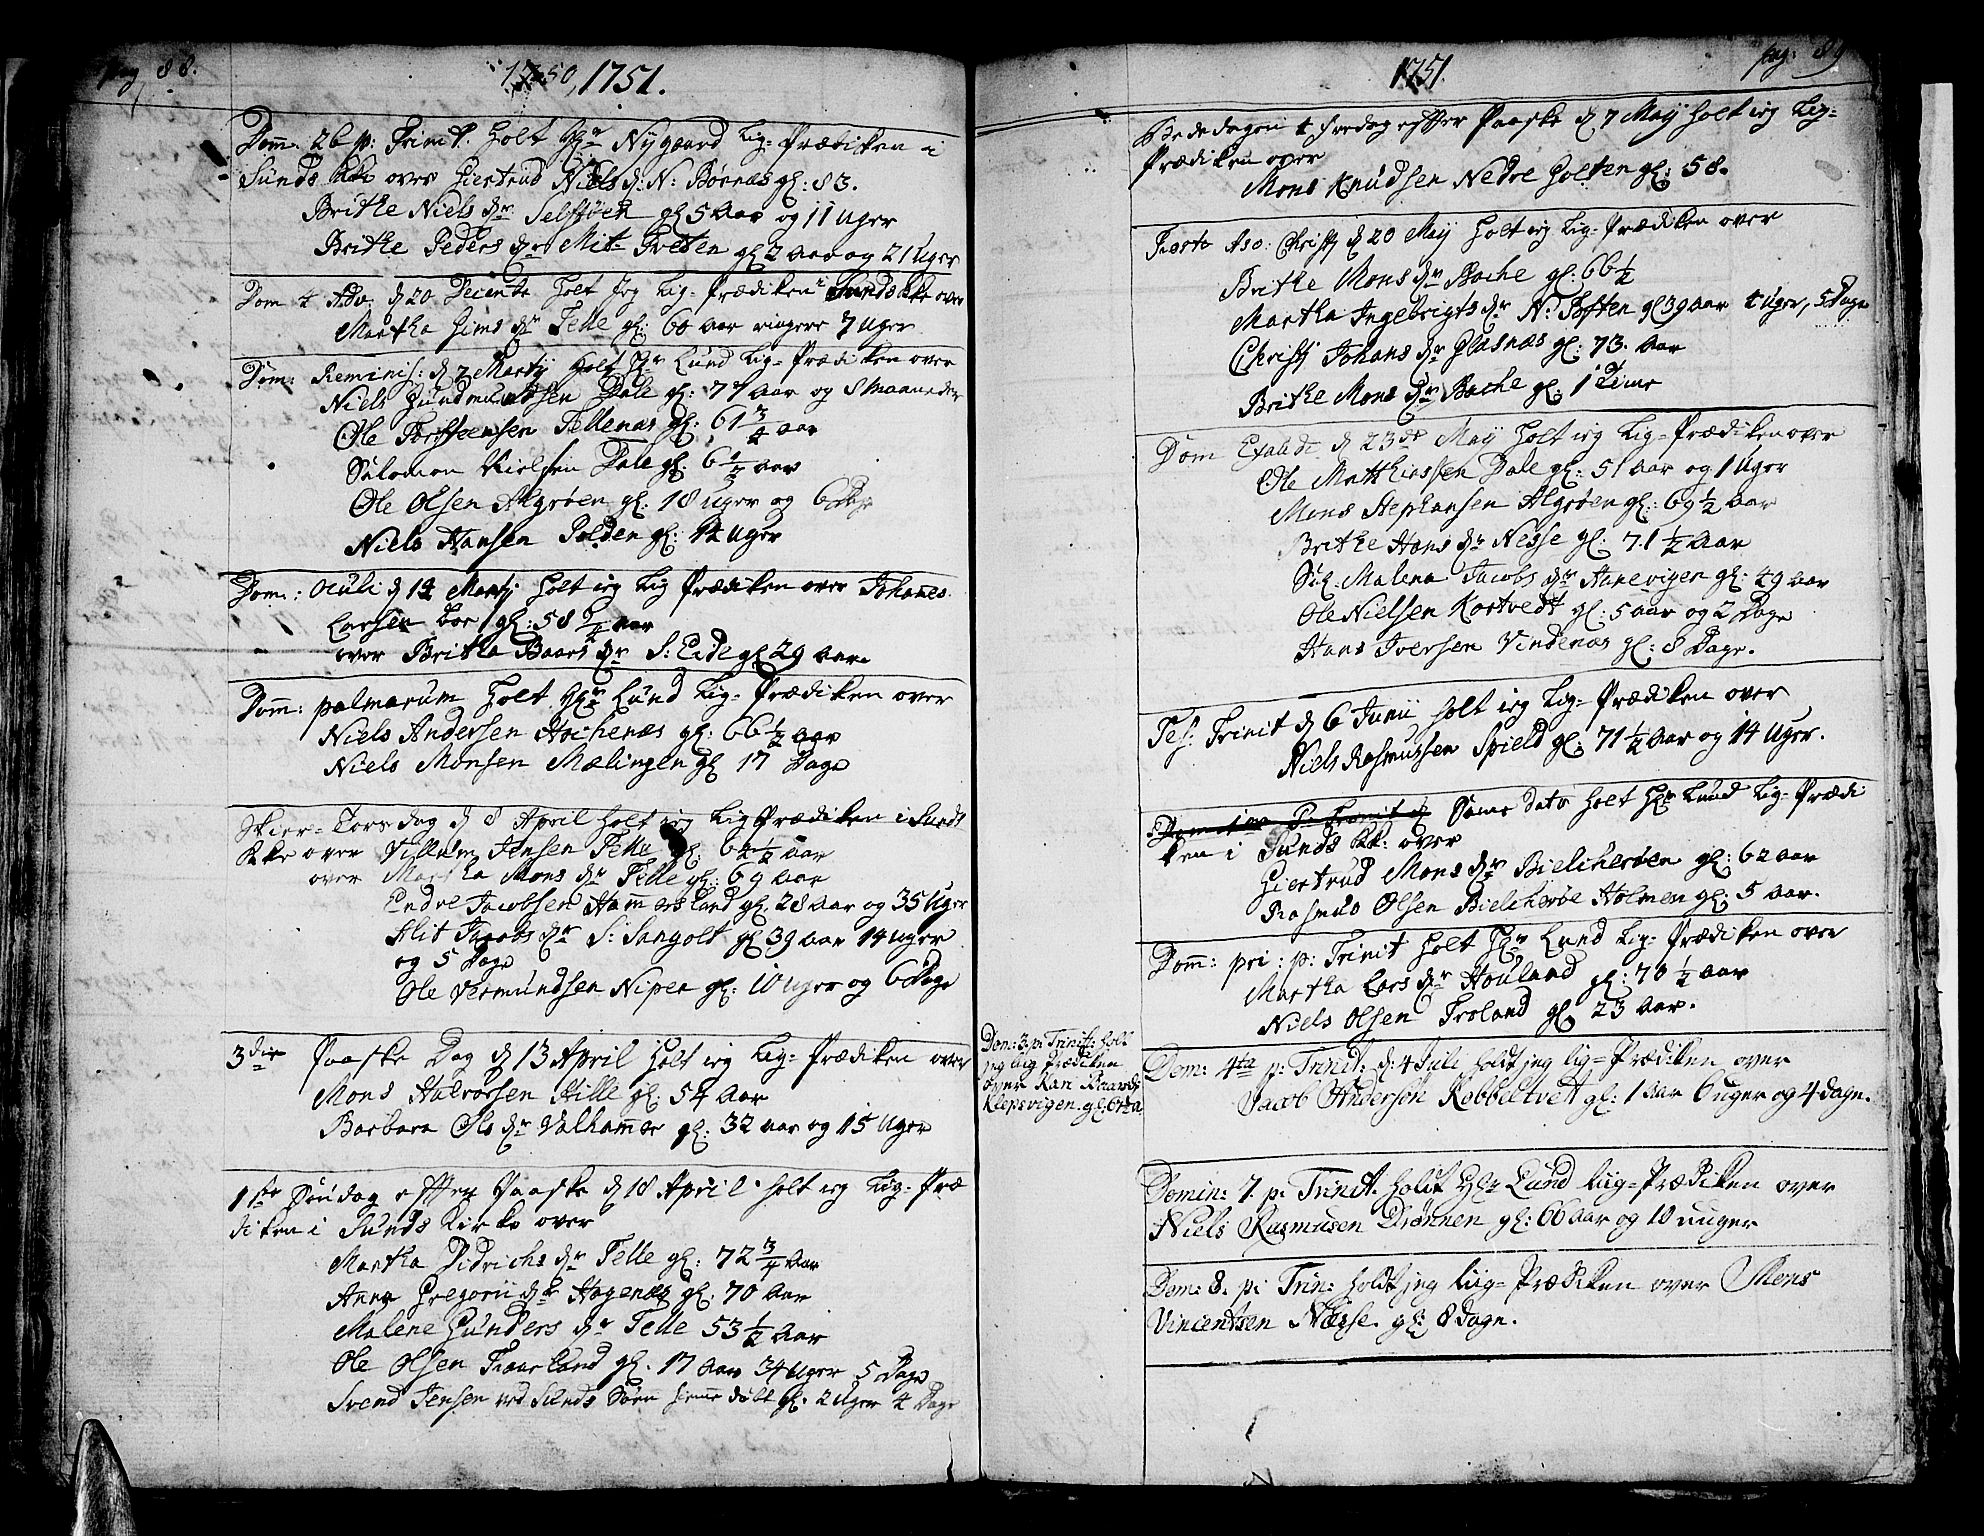 pag 88.
1750, 1751.
Dom: 26 p: Trinit. holt Hr Nygaard Lig-Prædiken i
Sunds Kke over Giertrud Niels dr N: Børnæs gl: 83.
Brithe Niels dr Selstøen gl 5 Aar og 11 Uger
Brithe Peders dr Mit-Tveten gl 2 Aar og 21 Uger
Dom 4 Adv. d 20 Decembr holt Jeg Lig-Prædiken i Sunds Kke over
Martha Sims dr Telle gl: 60 Aar ringere 7 Uger
Dom: Reminis: d 7 Martij holt Hr Lund Lig-Prædiken over
Niels Gudmundsen Dale gl: 77 Aar og 8 Maaneder
Ole Torsteensen Tellenæs gl: 61 3/4 Aar
Salomon Nielsen Dale gl: 6 1/2 Aar
Ole Olsen Algrøen gl: 18 Uger og 6 Dage
Niels Hansen Polden gl: 14 Uger
Dom: Oculi d 14 Martij holt ieg Lig Prædiken over Johannes
Larsen Boe gl: 58 1/4 Aar
over Britha Baars dr S: Eide gl 29 Aar
Dom: palmarum holt Hr Lund Lig-Prædiken over
Niels Andersen Høchenæs gl: 66 1/2 Aar
Niels Monsen Mælingen gl 17 Dage
Skier-Torsdag d 8 April holt ieg Lig Prædiken i Sunds
Kke over Villum Jensen Telle gl: 64 1/2 Aar
over Martha Mons dr Telle gl: 69 Aar
Endre Jacobsen Hammersland gl. 28 Aar og 35 Uger
Alit Jacobs dr S: Sangolt gl 39 Aar 14 Uger
og 5 Dage
Ole Vermundsen Nipen gl: 10 Uger og 6 Dage
3die Paaske Dag d 13 April holt ieg Lig-Prædiken over
Mons Halvorsen Hille gl: 54 Aar
Barbara Ols dr Valhammer gl: 32 Aar og 15 Uger
1ste Søndag efter Paaske d 18 April holt ieg Lig-Præ
diken i Sunds Kirke over
Martha Didrichs dr Telle gl: 72 3/4 Aar
Anna Gregorii dr Hagenæs gl: 70 Aar
Malene Gunders dr Telle 53 1/2 Aar
Ole Olsen Traarland gl. 17 Aar 34 Uger 5 Dage
Svend Jensen ved Sunds Søen hieme døbt gl: 2 Uger 4 Dage
1751.
pag: 89
Bededagen 4 fredag efter Paaske d 7 May holt ieg Lig-
Prædiken over
Mons Knudsen Nedre Holten gl: 58.
Festo Asc: Christi d 20 May holt ieg Lig-Prædiken over
Brithe Mons dr Bache gl: 66 1/2
Martha Ingebrigts dr N: Toften gl 39 Aar 4 Uger, 5 Dage
Christj Johans dr Glasnæs gl: 73. Aar
Brithe Mons dr Bache gl: 1 Time
Dom Exaudi d 23de May holt ieg Lig-Prædiken over
Ole Matthiassen Dale gl: 51 Aar og 1 Uger
Mons Stephansen Algrøen gl: 69 1/2 Aar
Brithe Hans dr Nesse gl: 71 1/2 Aar
Sig: Malena Jacobs dr Aanevigen gl: 49 Aar
Ole Nielsen Kortvedt gl: 5 Aar og 2 Dage
Hans Iversen Vindenæs gl: 8 Dage.
Fest: Trinit d 6 Junij holt ieg Lig-Prædiken over
Niels Rasmussen Spield gl: 71 1/4 Aar og 14 Uger.
Same dato holt Hr Lund Lig-Prædi
ken i Sunds Kk: over
Giertrud Mons dr Bielcherøen gl: 62 Aar
Rasmus Olsen Bielcherøe Holmen gl: 5 Aar.
Dom: pri: p: Trinit holt Hr Lund Lig-Prædiken over
Martha Lars dr Houland gl: 70 1/2 Aar
Niels Olsen Troland gl 23 Aar.
Dom: 3. p: Trinit: holt
jeg lig Prædiken
over Kari Baards
Klepsvigen gl:
Dom: 4ta p: Trinit: d: 4 Juli holdt jeg lig-Prædiken over
Jacob Andersøn Kobbeltvet gl: 1 Aar 6 uger og 4 dage.
Domin: 7. p: Trinit. holdt Hr Lund Liig-Prædiken over
Niels Rasmusen Drønnen gl: 66 Aar og 10 uuger
Dom: 8. p: Trin: holdt jeg Liig-Prædiken over Mons
Vincentsen Næsse. gl: 8 dage.